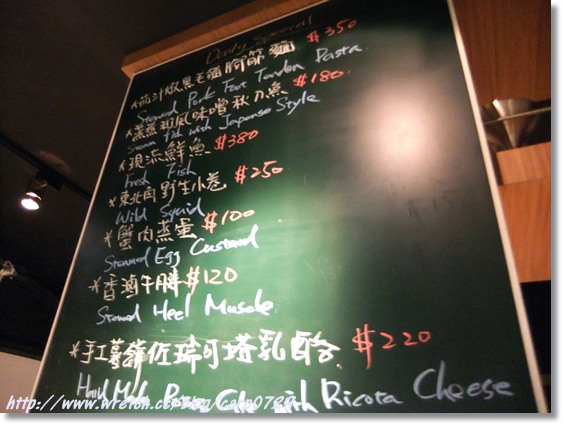 Daily Special
*茄汁燉黑毛豬腳筋麵 $350
Stewed Pork Feet Tendon Pasta
*蒸蒸和風味噌秋刀魚 $180
Steam Fish with Japanese Style
*現流鮮魚 $380
Fresh Fish
*東北角野生小卷 $250
Wild Squid
*蟹肉蒸蛋 $100
Steamed Egg Custard
*香滷牛腱 $120
Stewed Heel Muscle
*手工薯餅佐瑞可塔乳酪 $220
with Ricota Cheese